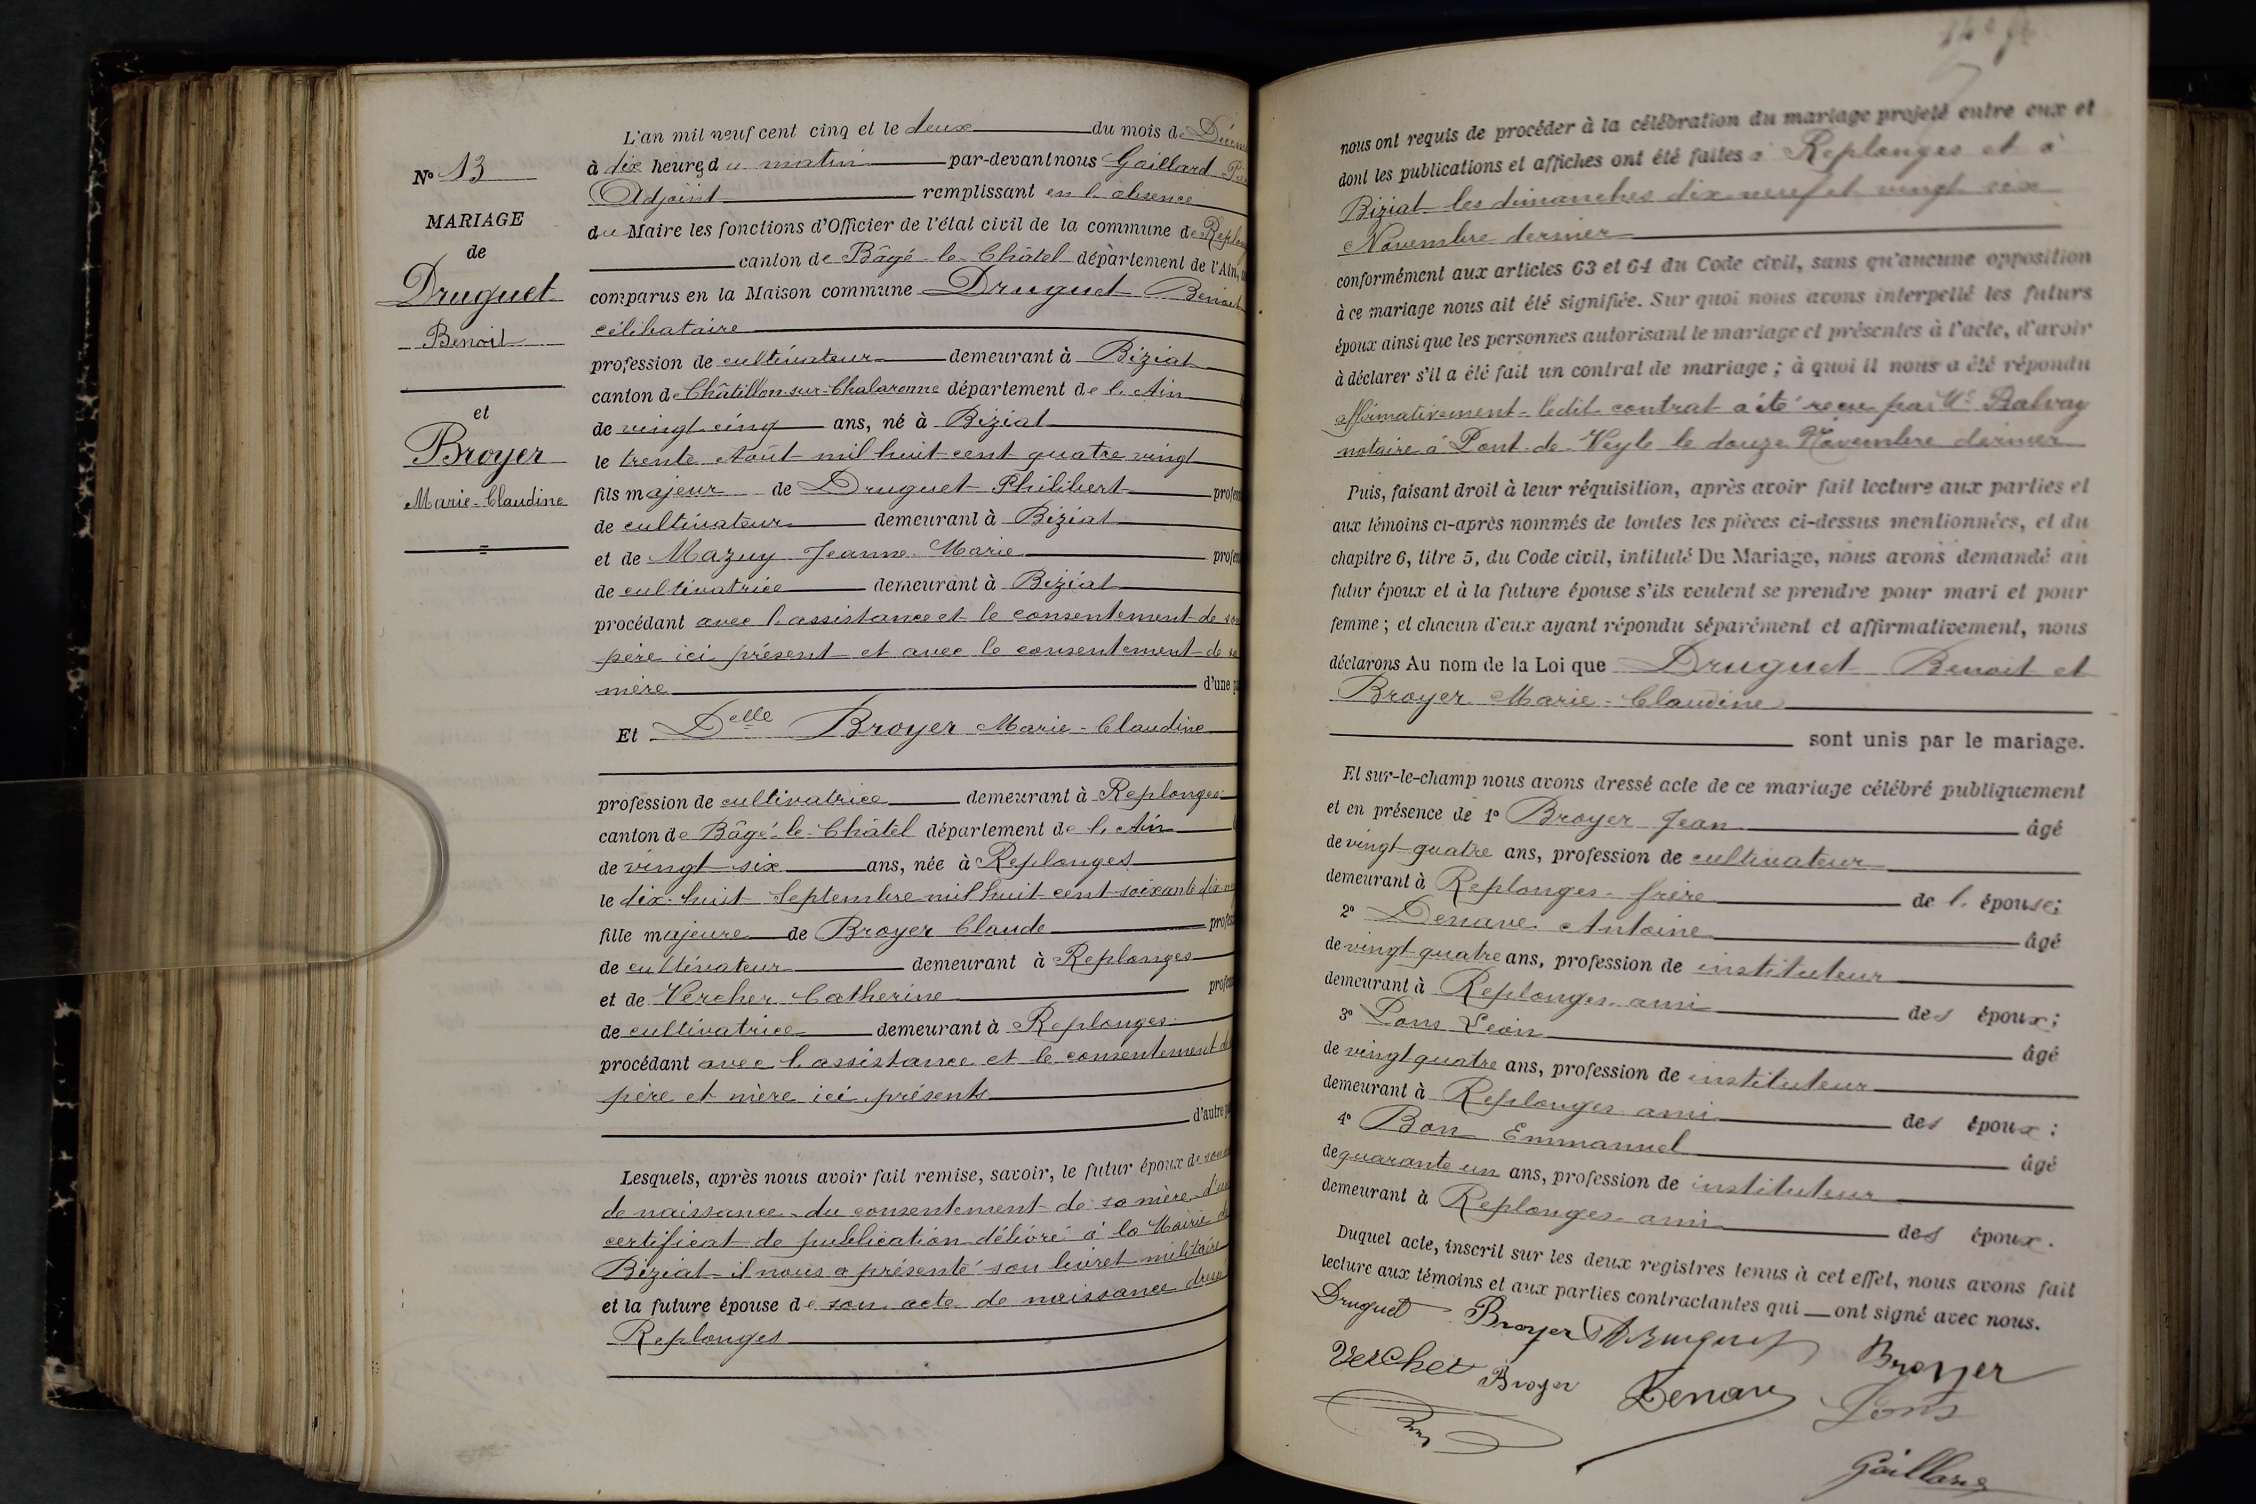 N° 13
MARIAGE
de
Druguet
Benoit
et
Broyer
Marie-Claudine
L'an mil neuf cent cinq et le deux du mois de
à dix heures du matin par-devant nous Gaillard
Adjoint remplissant en l'absence
du Maire les fonctions d'Officier de l'état civil de la commune de
canton de Bâgé-le-Châtel département de l'Ain,
comparus en la Maison commune Druguet Benoit
célibataire
profession de cultivateur demeurant à Biziat
canton de Châtillon-sur-Chalaronne département de l'Ain
de vingt cinq ans, né à Biziat
le trente Août mil huit cent quatre vingt
fils majeur de Druguet Philibert
de cultivateur demeurant à Biziat
et de Mazuy Jeanne Marie
de cultivatrice demeurant à Biziat
procédant avec l'assistance et le consentement de son
père ici présent et avec le consentement de sa
mère d'une
Et Delle Broyer Marie-Claudine
profession de cultivatrice demeurant à Replonges
canton de Bâgé-le-Châtel département de l'Ain
de vingt six ans, née à Replonges
le dix-huit Septembre mil huit cent soixante dix
fille majeure de Broyer Claude
de cultivateur demeurant à Replonges
et de Vercher Catherine
de cultivatrice demeurant à Replonges
procédant avec l'assistance et le consentement de
père et mère ici présents
d'autre
Lesquels, après nous avoir fait remise, savoir, le futur époux de
de naissance du consentement de sa mère d'un
certificat de publication délivré à la Mairie de
Biziat il nous a présenté son livret militaire
et la future épouse de son acte de naissance
Replonges
nous ont requis de procéder à la célébration du mariage projeté entre eux et
dont les publications et affiches ont été faites à Replonges et à
Biziat les dimanches dix-neuf et vingt six
Novembre dernier
conformément aux articles 63 et 64 du Code civil, sans qu'aucune opposition
à ce mariage nous ait été signifiée. Sur quoi nous avons interpellé les futurs
époux ainsi que les personnes autorisant le mariage et présentes à l'acte, d'avoir
à déclarer s'il a été fait un contrat de mariage ; à quoi il nous a été répondu
affirmativement ledit contrat a été reçu par Me
notaire à Pont-de-Veyle le douze Novembre dernier
Puis, faisant droit à leur réquisition, après avoir fait lecture aux parties et
aux témoins ci-après nommés de toutes les pièces ci-dessus mentionnées, et du
chapitre 6, titre 5, du Code civil, intitulé Du Mariage, nous avons demandé au
futur époux et à la future épouse s'ils veulent se prendre pour mari et pour
femme ; et chacun d'eux ayant répondu séparément et affirmativement, nous
déclarons Au nom de la Loi que Druguet Benoit et
Broyer Marie-Claudine
sont unis par le mariage.
Et sur-le-champ nous avons dressé acte de ce mariage célébré publiquement
et en présence de 1° Broyer Jean âgé
de vingt quatre ans, profession de cultivateur
demeurant à Replonges frère de l'épouse;
2° Denave Antoine âgé
de vingt quatre ans, profession de instituteur
demeurant à Replonges ami des époux;
3° Pons Léon âgé
de vingt quatre ans, profession de instituteur
demeurant à Replonges ami des époux :
4° Bon Emmanuel âgé
de quarante un ans, profession de instituteur
demeurant à Replonges ami des époux.
Duquel acte, inscrit sur les deux registres tenus à cet effet, nous avons fait
lecture aux témoins et aux parties contractantes qui ont signé avec nous.
Druguet Broyer Druguet Broyer
Vercher Broyer Denave Pons
Bon
Gaillard